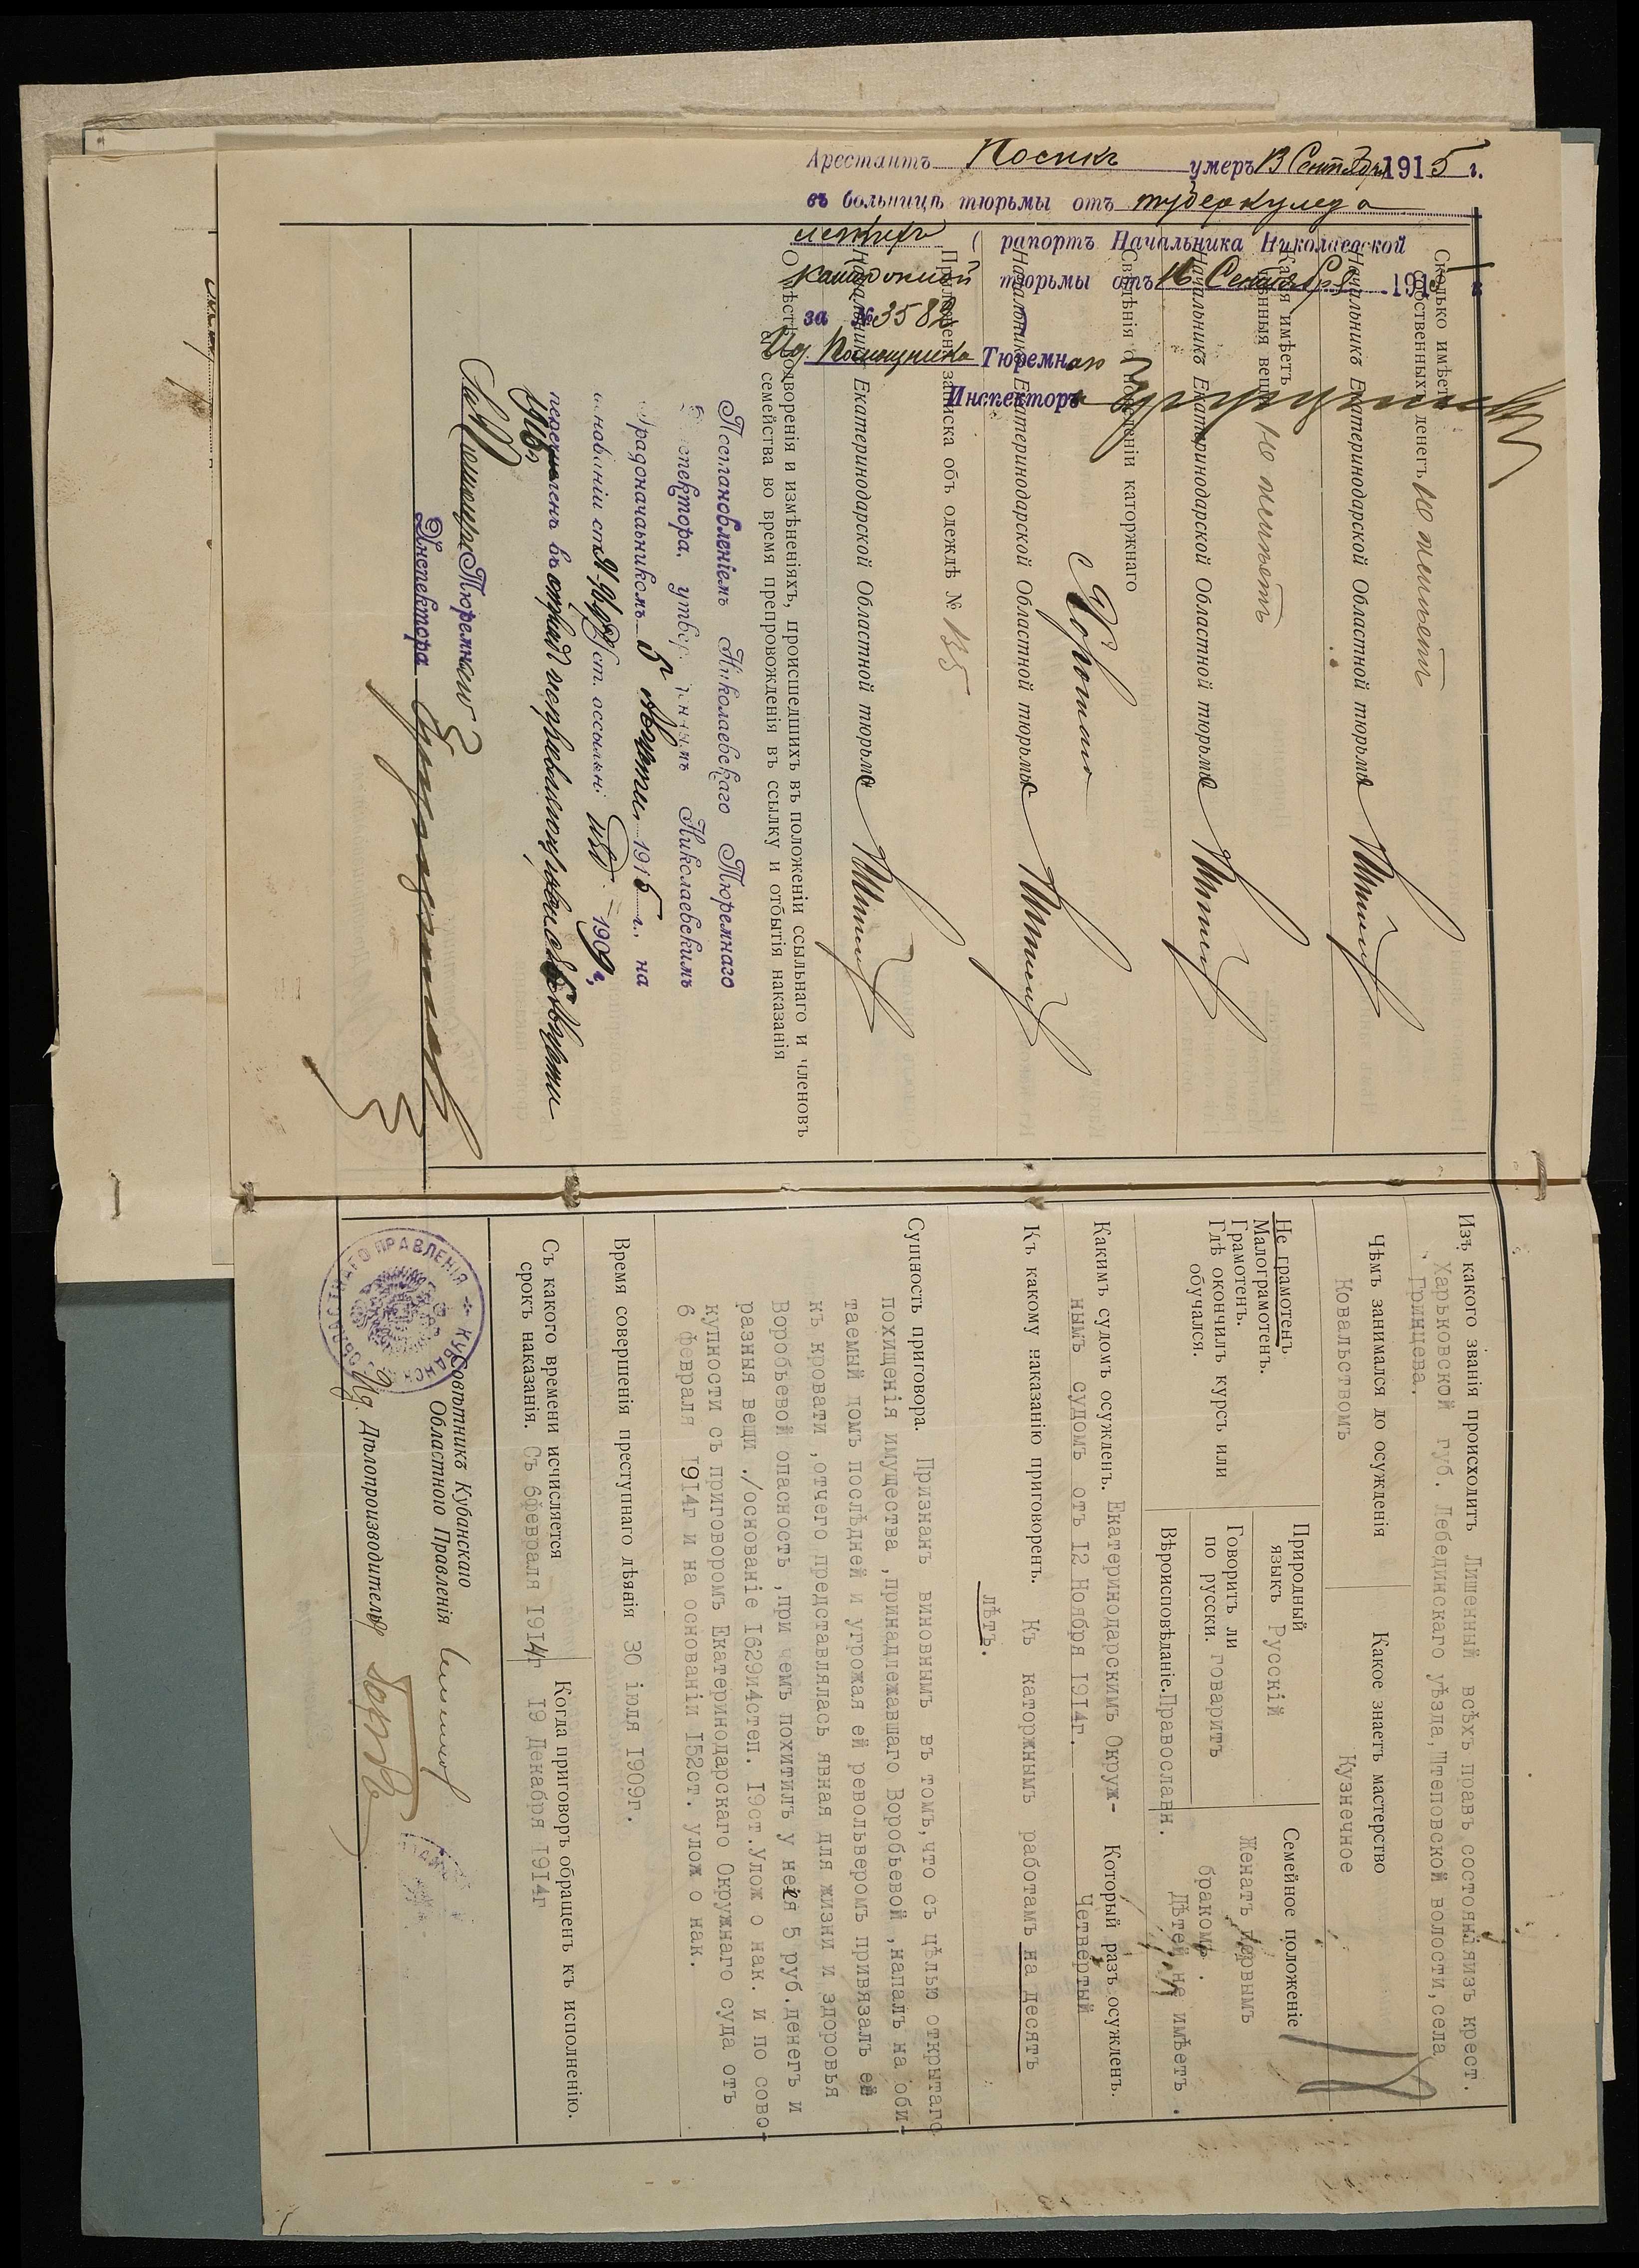 Арестантъ Носикъ умеръ 13 Сентября 1915 г.
въ больницѣ тюрьмы отъ туберкулеза
легкихъ ( рапортъ Начальника Николаевской
каторжной тюрьмы отъ 16 Сентября 1915 г.
за № 3582
Ид. Помощника Тюремнаго
Инспектора
Сколько имѣетъ
собственныхъ денегъ Не имѣетъ
Начальникъ Екатеринодарской Областной тюрьмы
Какія имѣетъ
цѣнныя вещи Не имѣетъ
Начальникъ Екатеринодарской Областной тюрьмы
Свѣдѣнія о поведеніи каторжнаго
Хорошаго
Начальникъ Екатеринодарской Областной тюрьмы
Приложена записка объ одеждѣ №
Начальникъ Екатеринодарской Областной тюрьмы
О мѣстѣ водворенія и измѣненіяхъ, происшедшихъ въ положеніи ссыльнаго и членовъ
семейства во время препровожденія въ ссылку и отбытія наказанія
Постановленіемъ Николаевскаго Тюремнаго
Инспектора, утвержденнымъ Николаевскимъ
Градоначальникомъ 5 Августа 1915 г., на
основаніи ст. Уст. о ссыльн. изд. 1909 г.
перечисленъ въ отрядъ исправляющихся съ 6 Августа
1915
Тюремнаго
Инспектора
Изъ какого званія происходитъ Лишенный всѣхъ правъ состоянія изъ крест.
Харьковской губ. Лебединскаго уѣзда, Штеповской волости, села
Гринцева.
Чѣмъ занимался до осужденія
Ковальствомъ
Какое знаетъ мастерство
Кузнечное
Не грамотенъ
Малограмотенъ.
Грамотенъ.
Гдѣ окончилъ курсъ или
обучался.
Природный
языкъ Русскій
Говоритъ ли
по русски. говаритъ
Вѣроисповѣданіе. Православн.
Семейное положеніе
Женатъ первымъ
бракомъ.
Дѣтей не имѣетъ.
Какимъ судомъ осужденъ. Екатеринодарскимъ Окруж-
нымъ судомъ отъ 12 Ноября 1914г.
Который разъ осужденъ.
Четвертый
Къ какому наказанію приговоренъ. Къ каторжнымъ работамъ на десять
лѣтъ.
Сущность приговора. Признанъ виновнымъ въ томъ, что съ цѣлью открытаго
похищенія имущества ,принадлежавшаго Воробьевой ,напалъ на оби-
таемый домъ послѣдней и угрожая ей револьверомъ привязалъ ей
къ кровати ,отчего представлялась явная для жизни и здоровья
Воробьевой опасность ,при чемъ похитилъ у нея 5 руб.денегъ и
разныя вещи ./основаніе 1629и4степ. 19ст.Улож о нак. и по сово-
купности съ приговоромъ Екатеринодарскаго Окружнаго суда отъ
6 февраля 1914г и на основаніи 152ст. улож о нак.
Время совершенія преступнаго дѣянія 30 іюля 1909г.
Съ какого времени исчисляется
срокъ наказанія. Съ 6февраля 1914г
Когда приговоръ обращенъ къ исполненію.
19 Декабря 1914г
Совѣтникъ Кубанскаго
Областного Правленія
Ид. Дѣлопроизводителя